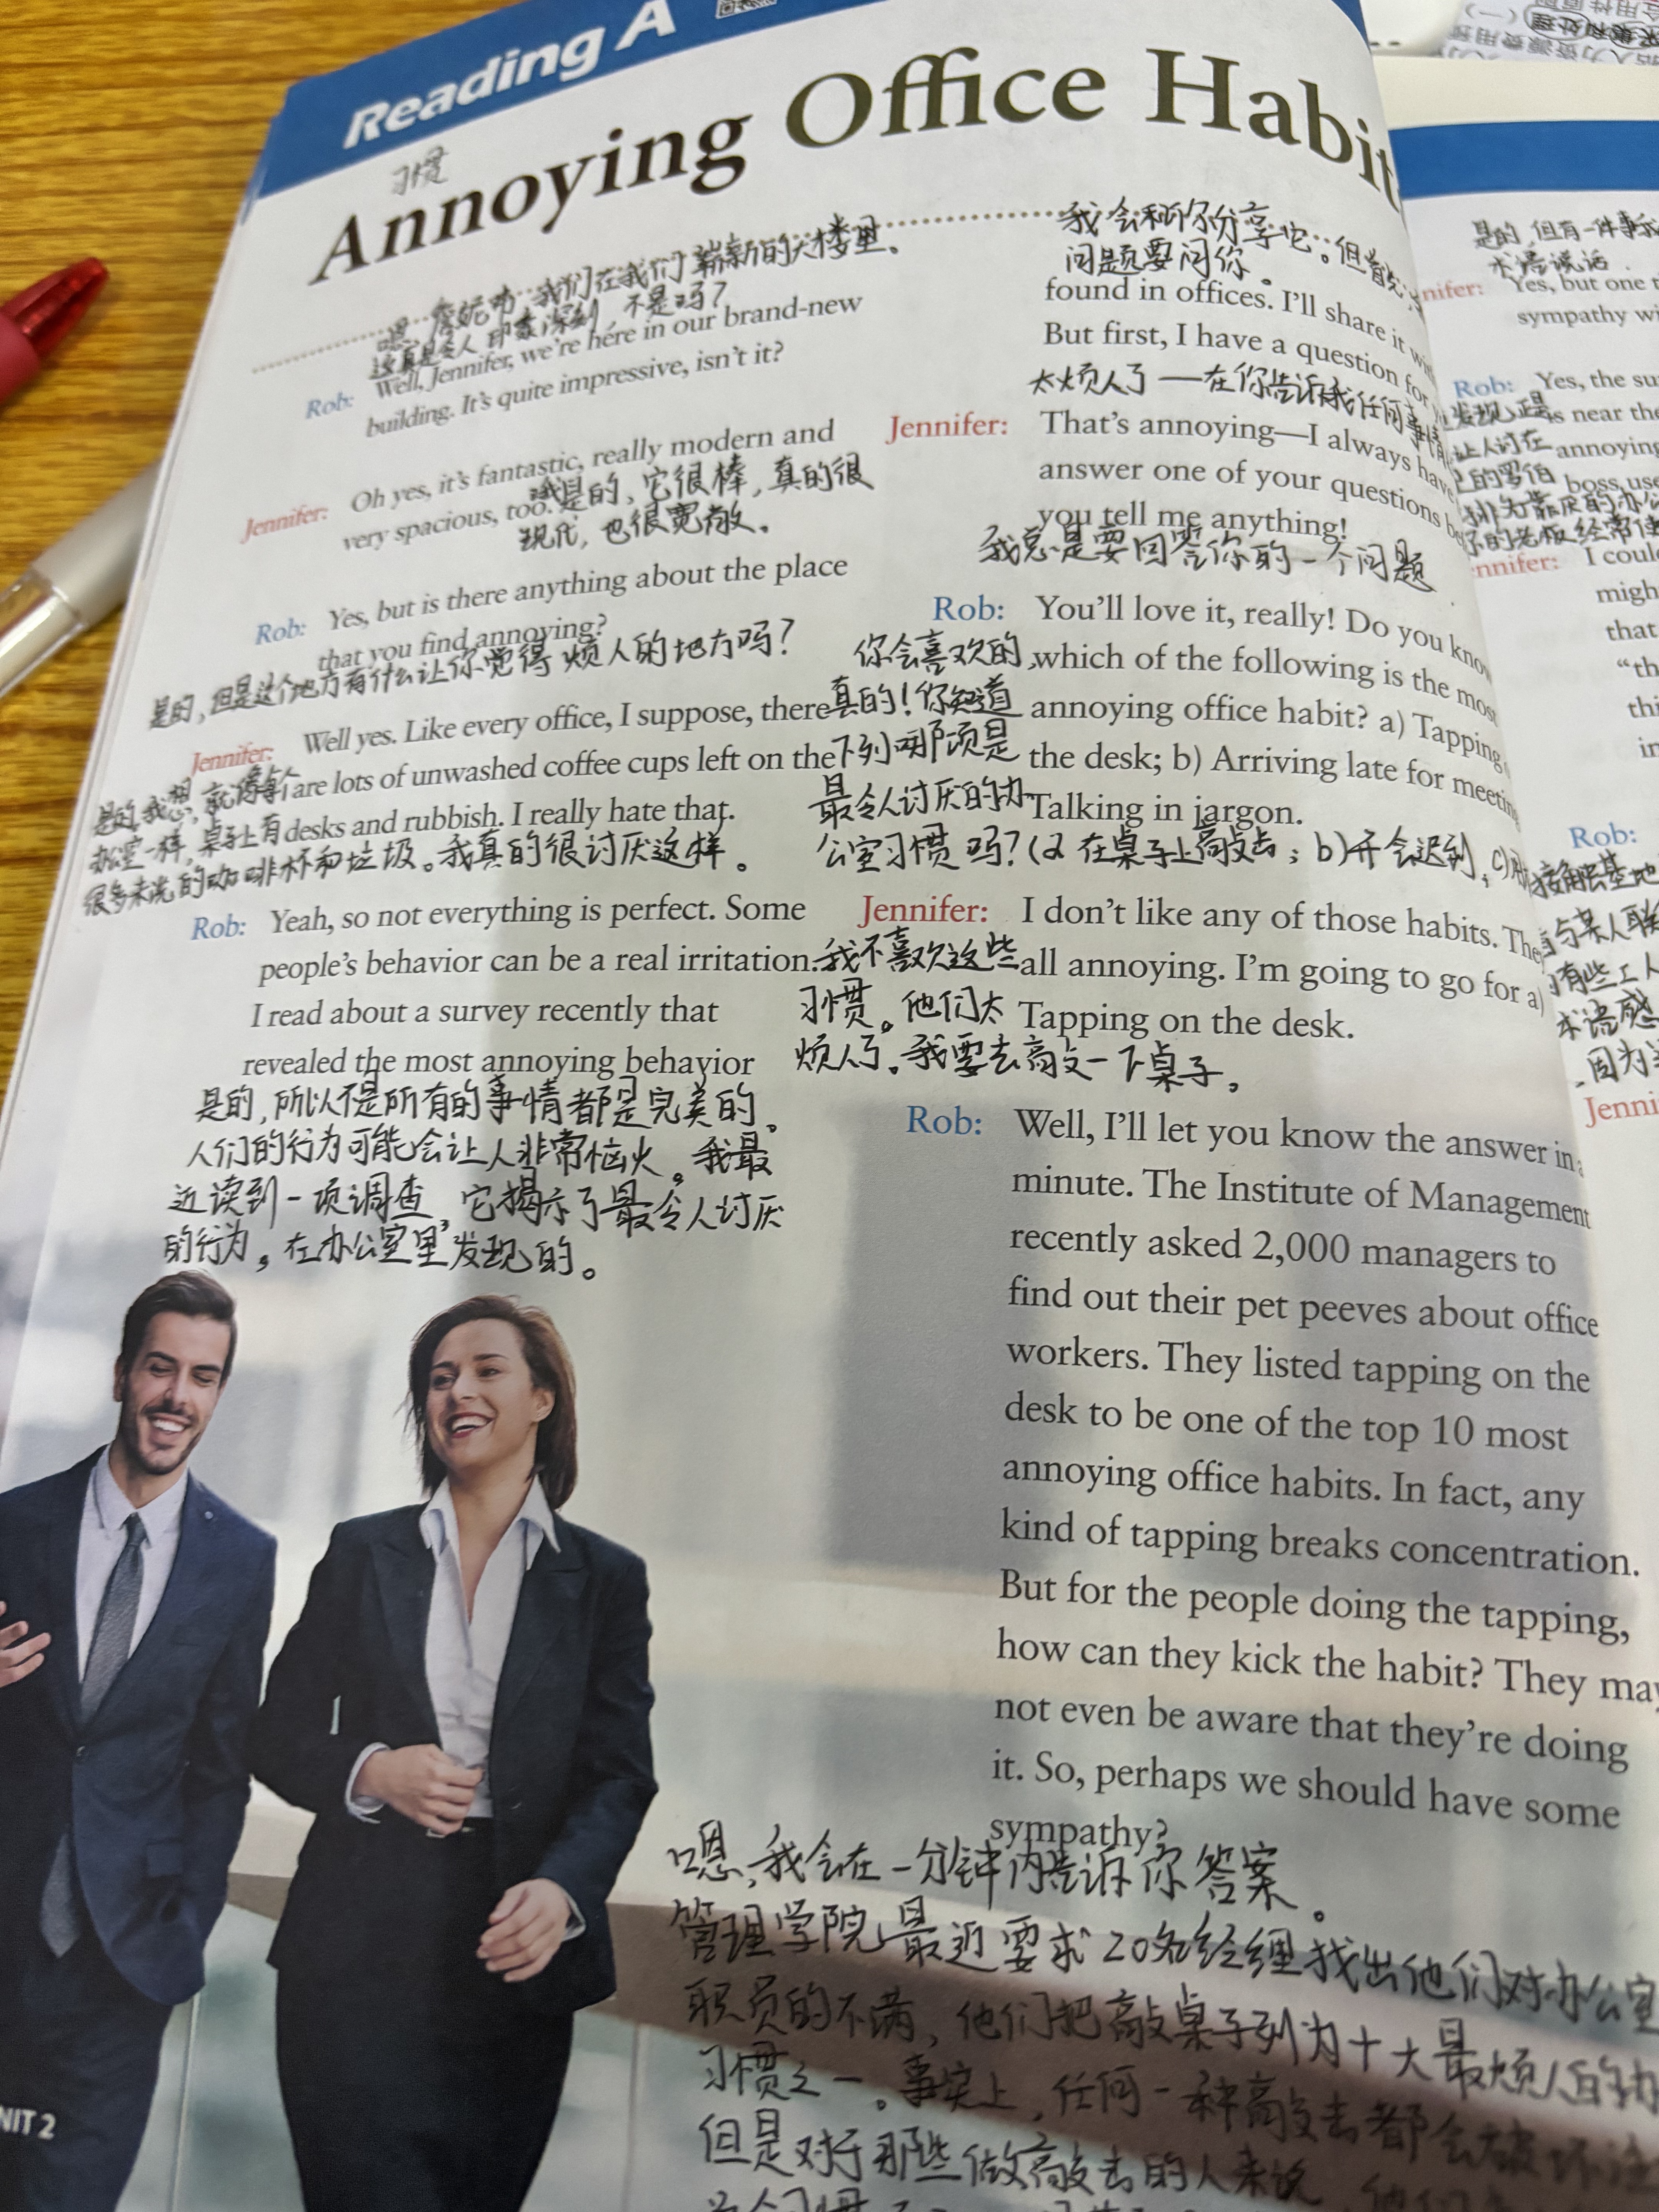 Reading A
习惯
Annoying Office Habit
嗯,詹妮弗,我们在我们崭新的大楼里。
这真是令人印象深刻,不是吗?
Rob: Well, Jennifer, we're here in our brand-new
building. It's quite impressive, isn't it?
Jennifer: Oh yes, it's fantastic, really modern and
very spacious, too.
是的,它很棒,真的很
现代,也很宽敞。
Rob: Yes, but is there anything about the place
that you find annoying?
是的,但是这个地方有什么让你觉得烦人的地方吗?
Jennifer: Well yes. Like every office, I suppose, there
are lots of unwashed coffee cups left on the
desks and rubbish. I really hate that.
是的,我想,就像每个
办公室一样,桌子上有
很多未洗的咖啡杯和垃圾。我真的很讨厌这样。
Rob: Yeah, so not everything is perfect. Some
people's behavior can be a real irritation.
I read about a survey recently that
revealed the most annoying behavior
是的,所以不是所有的事情都是完美的。
人们的行为可能会让人非常恼火。我最
近读到一项调查,它揭示了最令人讨厌
的行为。在办公室里发现的。
我会和你分享它。但首先
问题要问你。
found in offices. I'll share it with
But first, I have a question for
太烦人了——在你告诉我任何事情
Jennifer: That's annoying—I always have
answer one of your questions be
you tell me anything!
我总是要回答你的一个问题
Rob: You'll love it, really! Do you know
which of the following is the most
annoying office habit? a) Tapping
the desk; b) Arriving late for meetin
Talking in jargon.
你会喜欢的,
真的!你知道
下列哪项是
最令人讨厌的办
公室习惯吗?(a 在桌子上敲击;b)开会迟到;c)
Jennifer: I don't like any of those habits. The
all annoying. I'm going to go for a)
Tapping on the desk.
我不喜欢这些
习惯。他们太
烦人了。我要去敲一下桌子。
Rob: Well, I'll let you know the answer in a
minute. The Institute of Management
recently asked 2,000 managers to
find out their pet peeves about office
workers. They listed tapping on the
desk to be one of the top 10 most
annoying office habits. In fact, any
kind of tapping breaks concentration.
But for the people doing the tapping,
how can they kick the habit? They may
not even be aware that they're doing
it. So, perhaps we should have some
sympathy?
嗯,我会在一分钟内告诉你答案。
管理学院最近要求20名经理找出他们对办公室
职员的不满,他们把敲桌子列为十大最烦人的办
习惯之一。事实上,任何一种敲击都会破坏注
但是对于那些做敲击的人来说,他们
NIT 2
是的,但有一件事我
术语说话
nnifer: Yes, but one t
sympathy wi
Rob: Yes, the su
is near the
annoying
boss use
发现,正是
让人讨厌
的罗伯
排为靠后的办公
你的老板经常使
nnifer: I coul
migh
that
"th
thi
in
Rob:
接触基地
与某人联
有些工人
术语感
因为
Jenni